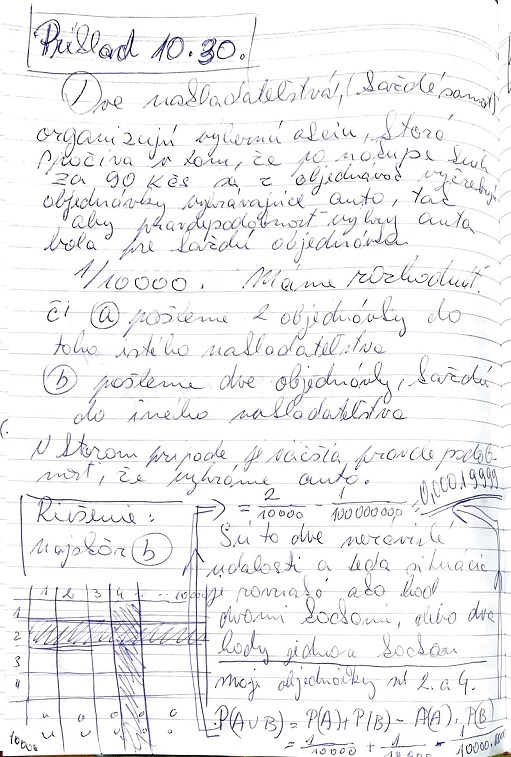 Príklad 10.30.
Dve nakladatelstvá, (každé samost)
organizujú výhernú akciu, ktorá
spočíva v tom, že po nákupe kníh
za 90 Kčs sa z objednávok vyžrebujú
objednávky vyhrávajúce auto, tak
aby pravdepodobnosť výhry auta
bola pre každú objednávku
1/10000. Máme rozhodnúť.
či (a) pošleme 2 objednávky do
toho istého nakladatelstva
(b) pošleme dve objednávky, každú
do iného nakladatelstva
V ktorom prípade je väčšia pravdepodob-
nosť, že vyhráme auto.
Riešenie:
najskôr (b)
= 2/10000 - 1/100000000 = 0,00019999
Sú to dve nezávislé
udalosti a teda situácia
je rovnaká ako hod
dvomi kockami, alebo dva
hody jednou kockou
moje objednávky sú 2. a 4.
P(A∪B) = P(A) + P(B) - P(A) . P(B)
= 1/10000 + 1/10000 -
1 2 3 4 ... 10000
1
2
3
4
10000